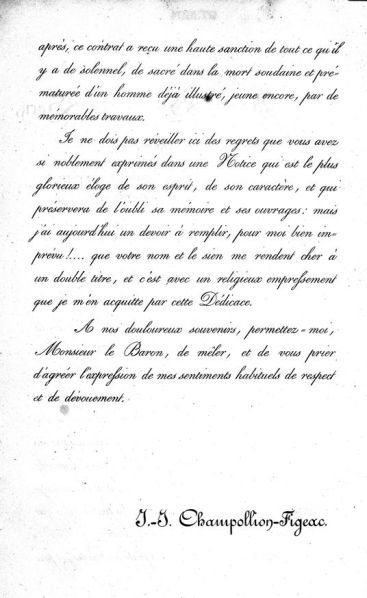 après, ce contrat a reçu une haute sanction de tout ce qu'il
y a de solennel, de sacré dans la mort soudaine et pré-
maturée d'un homme déjà illustré, jeune encore, par de
mémorables travaux.
Je ne dois pas réveiller ici des regrets que vous avez
si noblement exprimés dans une Notice qui est le plus
glorieux éloge de son esprit, de son caractère, et qui
préservera de l'oubli sa mémoire et ses ouvrages: mais
j'ai aujourd'hui un devoir à remplir, pour moi bien im-
prévu!.... que votre nom et le sien me rendent cher à
un double titre, et c'est avec un religieux empressement
que je m'en acquitte par cette Dédicace.
A nos douloureux souvenirs, permettez-moi,
Monsieur le Baron, de mêler, et de vous prier
d'agréer l'expression de mes sentiments habituels de respect
et de dévouement.
J.-J. Champollion-Figeac.